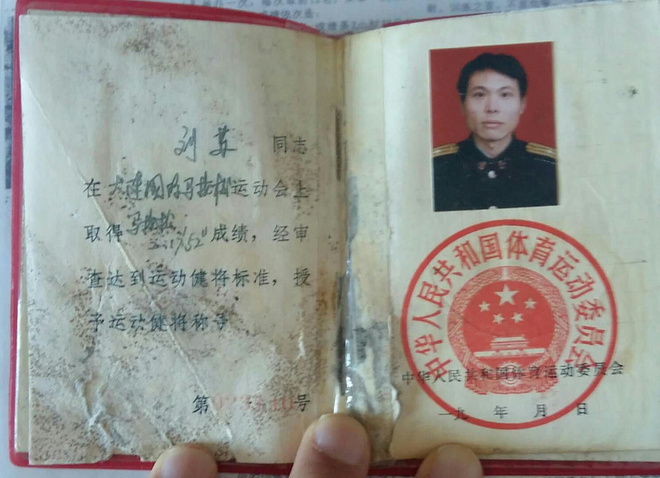 刘苏 同志
在大连国际马拉松运动会上
取得马拉松2:17'52"成绩，经审
查达到运动健将标准，授
予运动健将称号
第 号
中华人民共和国体育运动委员会
中华人民共和国体育运动委员会
一九 年 月 日